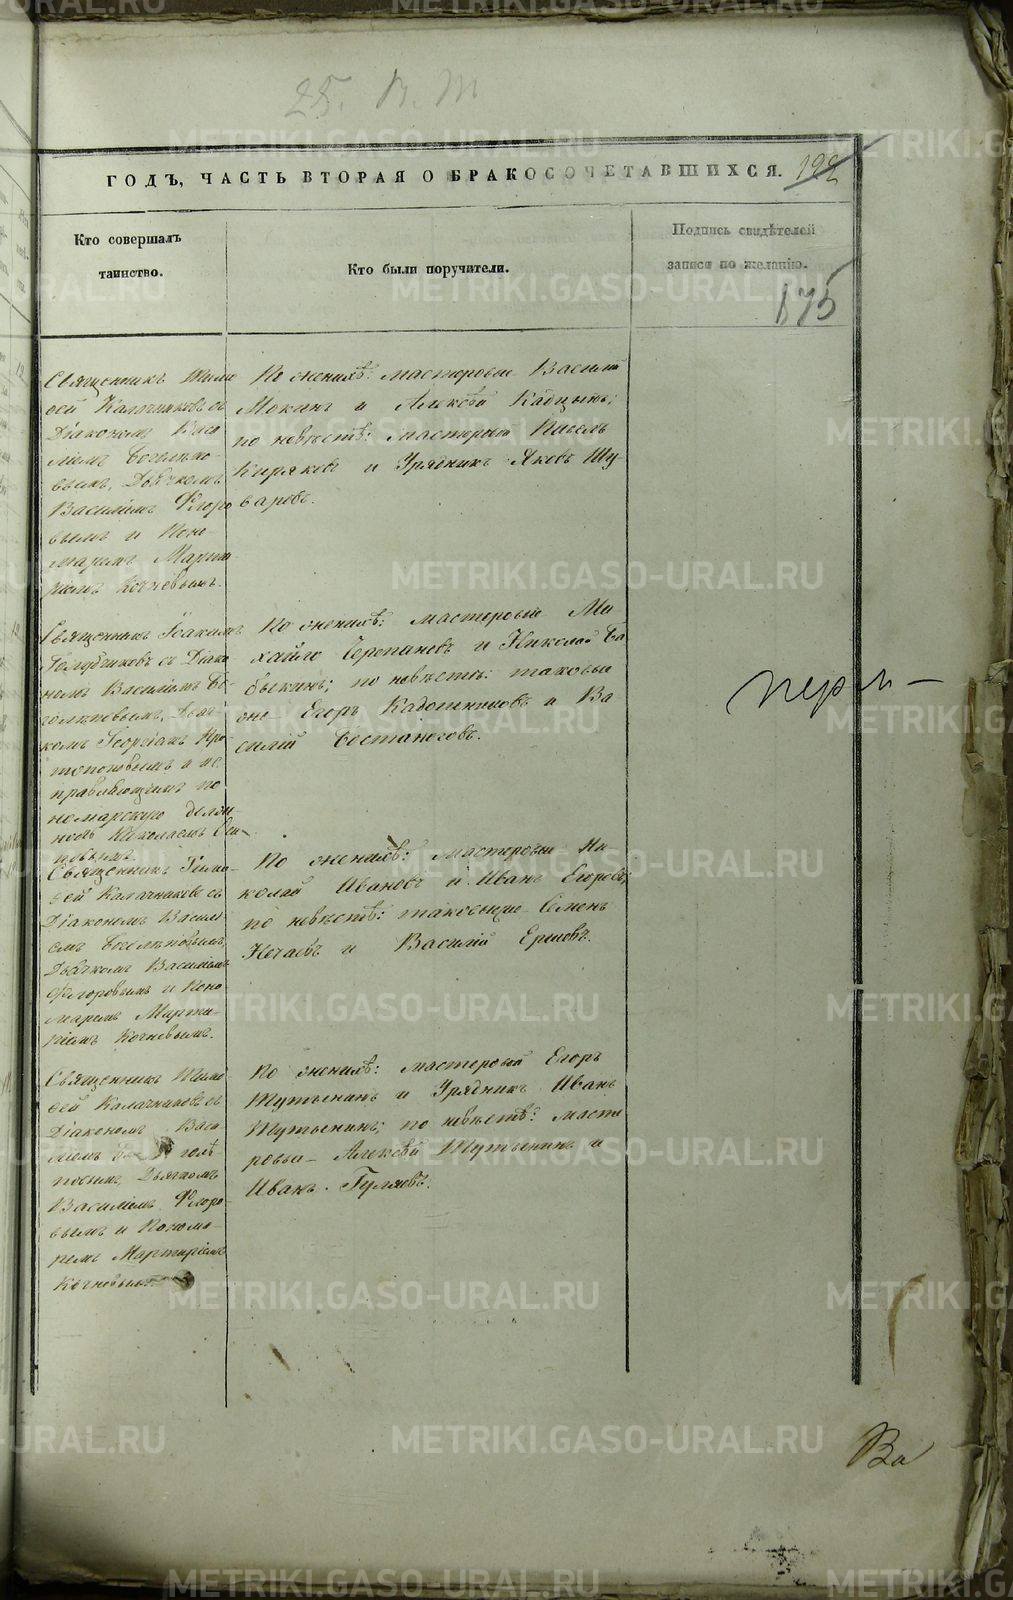 25. В. Т
ГОДЪ, ЧАСТЬ ВТОРАЯ О БРАКОСОЧЕТАВШИХСЯ.
192
Кто совершалъ
таинство.
Кто были поручители.
Подпись свидѣтелей
записи по желанію.
175
Священникъ Тимо
ѳей Калачниковъ съ
Діакономъ Васи
ліемъ Боголѣпо-
вымъ, Дьячкомъ
Василіемъ Ѳедоро
вымъ и Поно-
маремъ Марти
ріемъ Кочневымъ.
По женихѣ: мастеровые Василій
Мокинъ и Алексѣй
по невѣстѣ: мастеровой
Киряковъ и Урядникъ Яковъ Шу
варовъ.
Священникъ Іоакимъ
Голубчиковъ съ Діако
номъ Василіемъ Бо-
голѣповымъ, Дьяч
комъ Георгіемъ Про
топоповымъ и ис
правляющимъ по
номарскую долж
ность Николаемъ
По женихѣ: мастеровые Ми
хайло Черепановъ и Николай Ба
быкинъ; по невѣстѣ: таковые
же Егоръ Кадошниковъ и Ва
силій
перм-
Священникъ Тимо-
ѳей Калачниковъ съ
Діакономъ Васили-
емъ Боголѣповымъ,
Дьячкомъ Василіемъ
Ѳедоровымъ и Поно
маремъ Марти-
ріемъ Кочневымъ.
По женихѣ: мастеровые Ни
колай Ивановъ и Иванъ Егоровъ;
по невѣстѣ: таковые же Семенъ
Нечаевъ и Василій Ершовъ.
Священникъ Тимо
ѳей Калачниковъ съ
Діакономъ Васи
ліемъ Боголѣ
повымъ, Дьячкомъ
Василіемъ Ѳедоро
вымъ и Понома-
ремъ Мартиріемъ
Кочневымъ.
По женихѣ: мастеровой Егоръ
и Урядникъ Иванъ
по невѣстѣ: масте
ровые Алексѣй и
Иванъ Гуляевъ.
Ва
METRIKI.GASO-URAL.RU